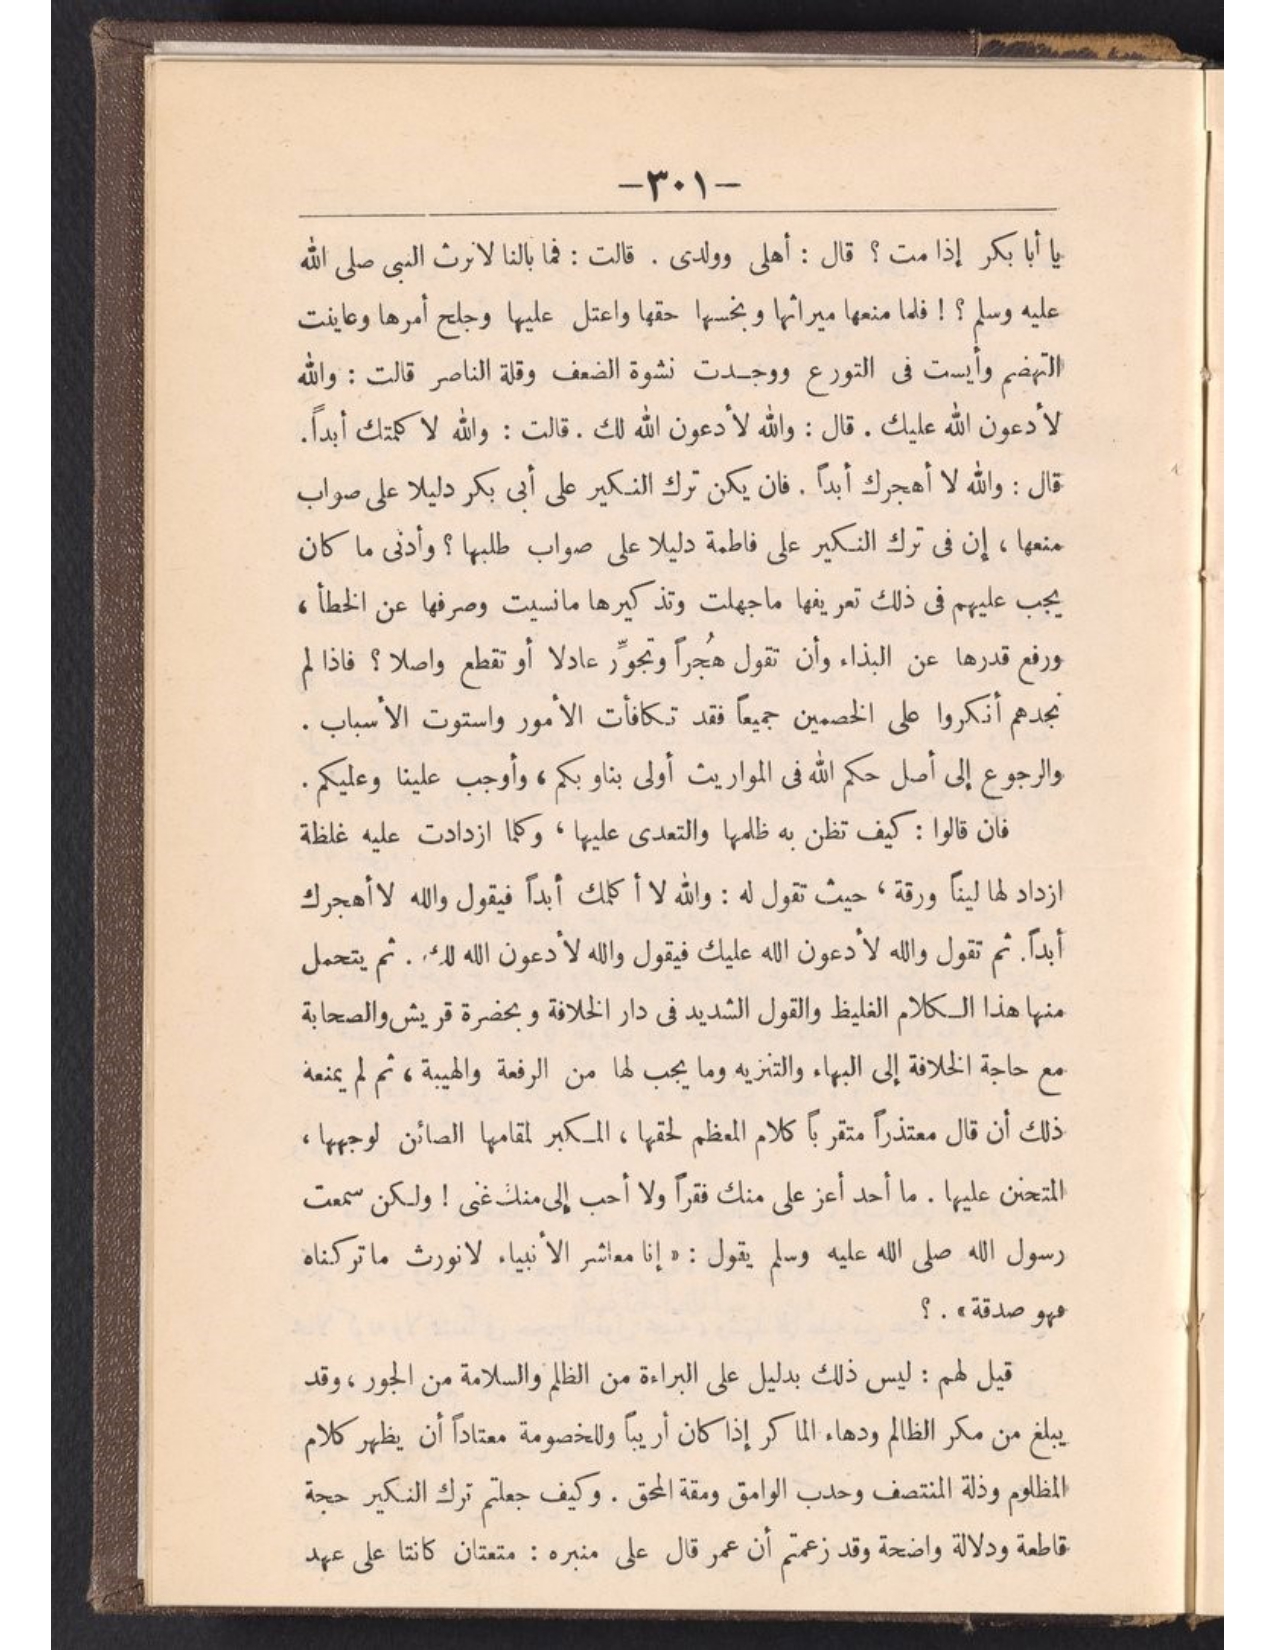 -٣٠١-
يا أبا بكر إذا مت ؟ قال : أهلى وولدى . قالت : فما بالنا لا نرث النبى صلى الله
عليه وسلم ؟ ! فلما منعها ميراثها وبخسها حقها واعتل عليها وجلح أمرها وعاينت
التهضم وأيست فى التورع ووجدت نشوة الضعف وقلة الناصر قالت : والله
لأدعون الله عليك . قال : والله لأدعون الله لك . قالت : والله لا كلمتك أبداً .
قال : والله لا أهجرك أبداً . فان يكن ترك النكير على أبى بكر دليلا على صواب
منعها ، إن فى ترك النكير على فاطمة دليلا على صواب طلبها ؟ وأدنى ما كان
يجب عليهم فى ذلك تعريفها ماجهلت وتذكيرها مانسيت وصرفها عن الخطأ ،
ورفع قدرها عن البذاء وأن تقول هُجراً وتجوِّر عادلا أو تقطع واصلا ؟ فاذا لم
نجدهم أنكروا على الخصمين جميعاً فقد تكافأت الأمور واستوت الأسباب .
والرجوع إلى أصل حكم الله فى المواريث أولى بناوبكم ، وأوجب علينا وعليكم .
فان قالوا : كيف تظن به ظلمها والتعدى عليها ، وكلما ازدادت عليه غلظة
ازداد لها ليناً ورقة ، حيث تقول له : والله لا أكلمك أبداً فيقول والله لا أهجرك
أبداً. ثم تقول والله لأدعون الله عليك فيقول والله لأدعون الله لك . ثم يتحمل
منها هذا الكلام الغليظ والقول الشديد فى دار الخلافة وبحضرة قريش والصحابة
مع حاجة الخلافة إلى البهاء والتنزيه وما يجب لها من الرفعة والهيبة ، ثم لم يمنعه
ذلك أن قال معتذراً متقرباً كلام المعظم لحقها ، المكبر لمقامها الصائن لوجهها ،
المتحنن عليها . ما أحد أعز على منك فقراً ولا أحب إلى منك غنى ! ولكن سمعت
رسول الله صلى الله عليه وسلم يقول : « إنا معاشر الأنبياء لانورث ماتركناه
فهو صدقة » . ؟
قيل لهم : ليس ذلك بدليل على البراءة من الظلم والسلامة من الجور ، وقد
يبلغ من مكر الظالم ودهاء الماكر إذا كان أريباً وللخصومة معتاداً أن يظهر كلام
المظلوم وذلة المنتصف وحدب الوامق ومقة المحق . وكيف جعلتم ترك النكير حجة
قاطعة ودلالة واضحة وقد زعمتم أن عمر قال على منبره : متعتان كانتا على عهد